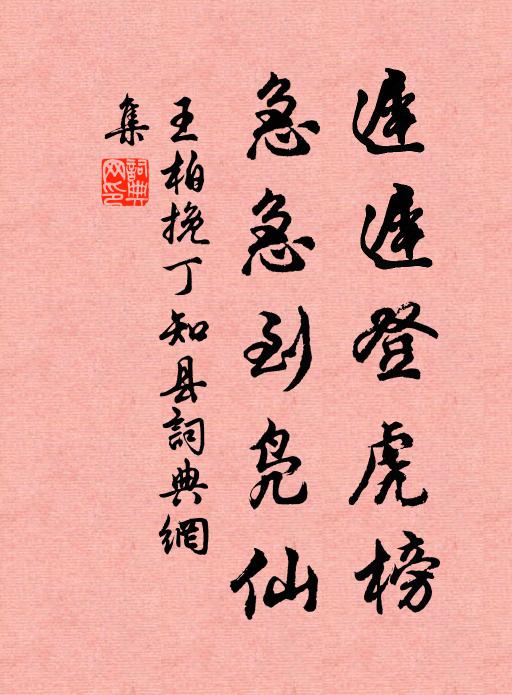 遲遲登虎榜
急急到凫仙
王柏挽丁知县詞典網
集
詞典網印